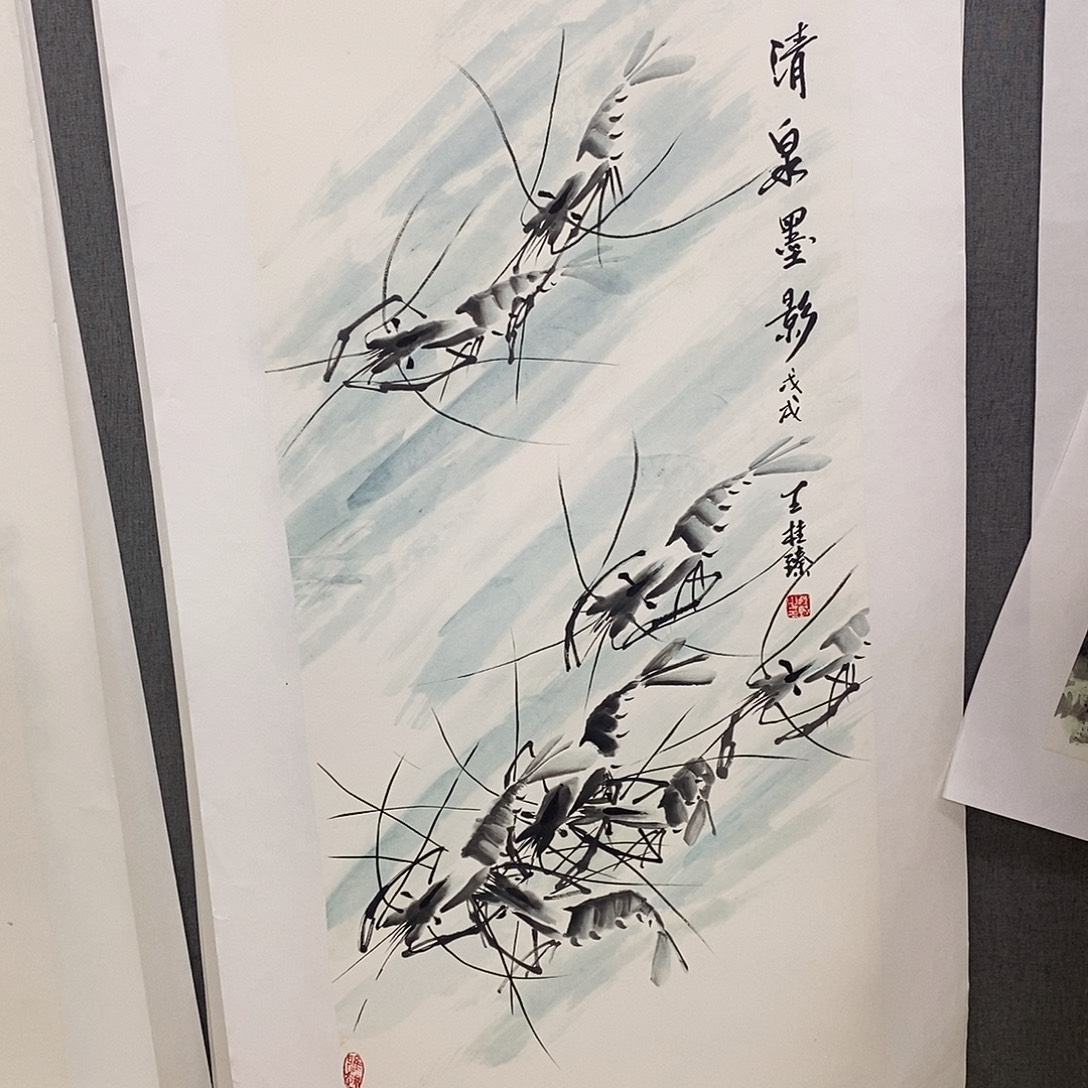 清泉墨影
戊戌
王桂臻